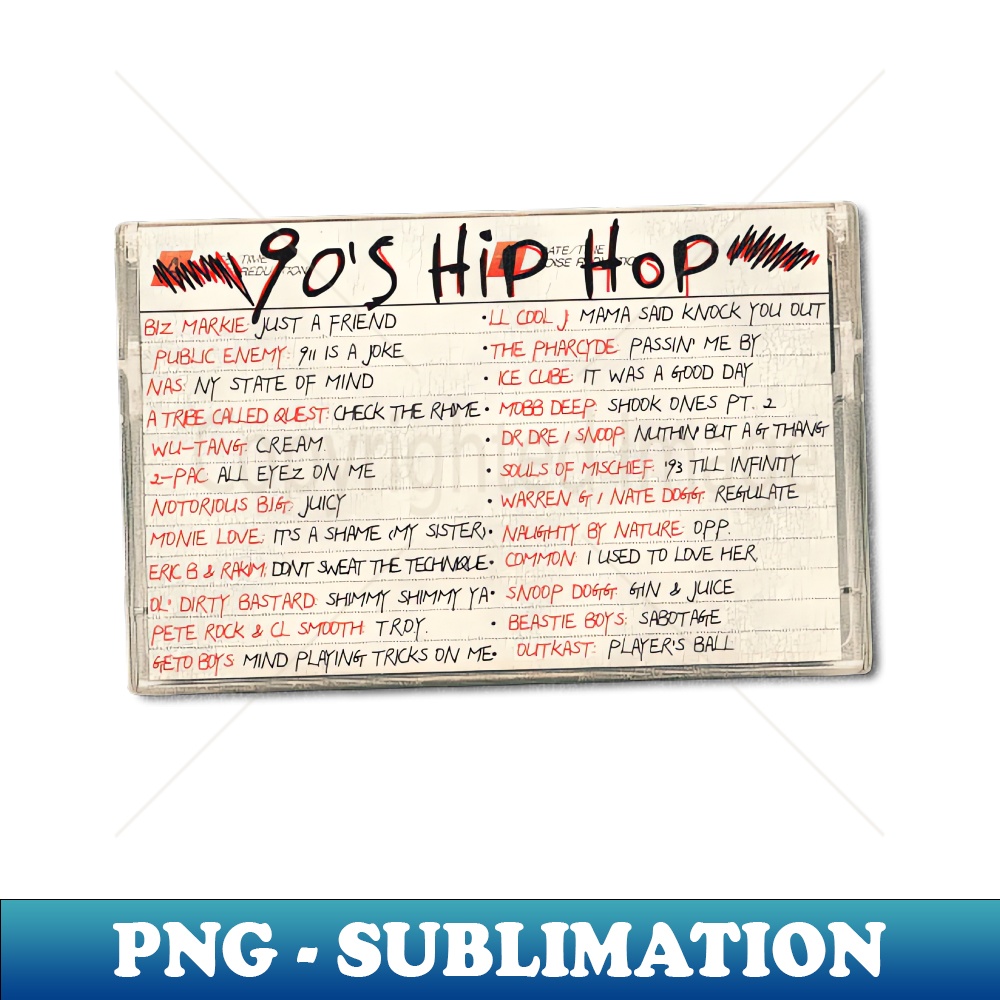 90's Hip Hop
BIZ MARKIE: JUST A FRIEND
PUBLIC ENEMY: 911 IS A JOKE
NAS: NY STATE OF MIND
A TRIBE CALLED QUEST: CHECK THE RHIME
WU-TANG: CREAM
2-PAC: ALL EYEZ ON ME
NOTORIOUS B.I.G.: JUICY
MONIE LOVE: IT'S A SHAME (MY SISTER)
ERIC B & RAKIM: DONT SWEAT THE TECHNIQUE
OL' DIRTY BASTARD: SHIMMY SHIMMY YA
PETE ROCK & CL SMOOTH: T.R.O.Y.
GETO BOYS: MIND PLAYING TRICKS ON ME
• LL COOL J: MAMA SAID KNOCK YOU OUT
• THE PHARCYDE: PASSIN' ME BY
• ICE CUBE: IT WAS A GOOD DAY
• MOBB DEEP: SHOOK ONES PT. 2
• DR. DRE / SNOOP: NUTHIN' BUT A G THANG
• SOULS OF MISCHIEF: '93 TILL INFINITY
• WARREN G / NATE DOGG: REGULATE
• NAUGHTY BY NATURE: OPP.
• COMMON: I USED TO LOVE HER
• SNOOP DOGG: GIN & JUICE
• BEASTIE BOYS: SABOTAGE
• OUTKAST: PLAYER'S BALL
PNG - SUBLIMATION